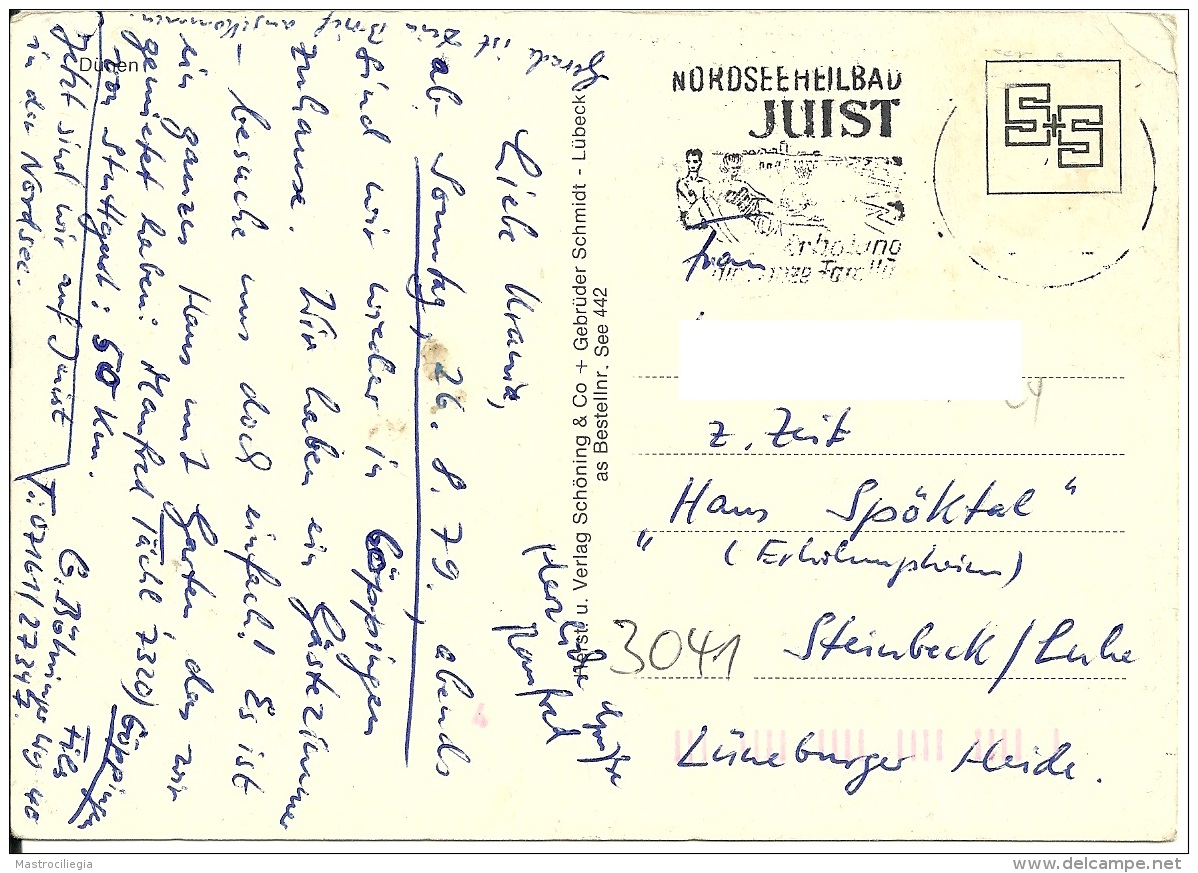 Gerade ist Dein Brief angekommen.
Liebe
ab Sonntag, 26. 8. 79, abends
sind wir wieder in Göppingen
zuhause. Wir haben ein Gästezimmer
– besuche uns doch einfach! Es ist
ein ganzes Haus mit Garten, das wir
gemietet haben: Manfred Tächl, 7320) Göppingen
von Stuttgart: 50 km. Fils
Jetzt sind wir auf Juist
in der Nordsee.
40
T: 07161/27347.
Herzliche
Manfred
Dünen
Herst. u. Verlag Schöning & Co + Gebrüder Schmidt - Lübeck
as Bestellnr. See 442
NORDSEEHEILBAD
JUIST
Erholung
S+S
Frau
z. Zeit
"Haus Spöktal"
(Erholungsheim)
3041 Steinbeck/Luhe
Lüneburger Heide.
Mastrociliegia
delcampe.net